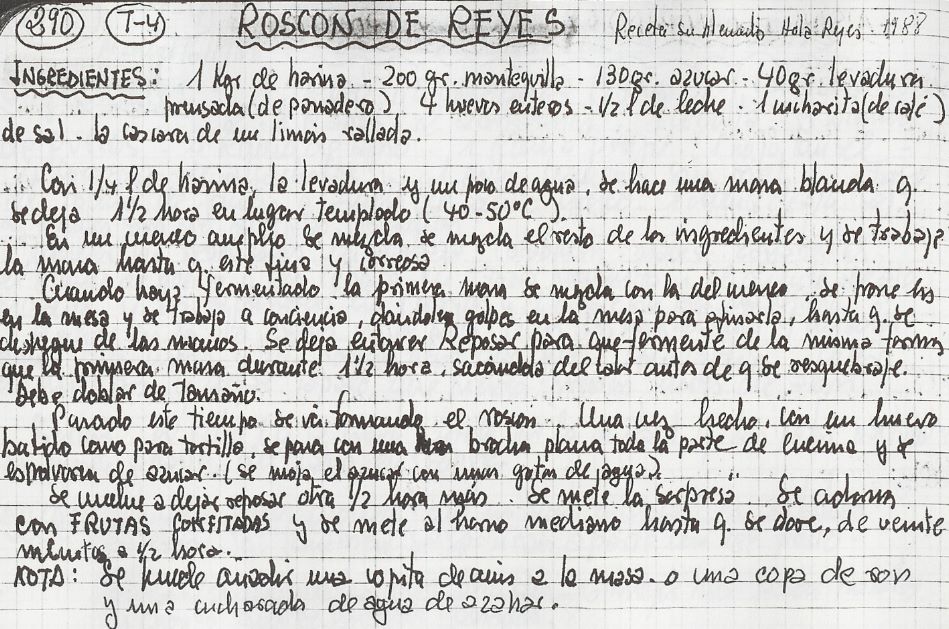 290 T-4 ROSCON DE REYES Receta su Hola Reyes 1988
INGREDIENTES: 1 Kgr de harina - 200 gr. mantequilla - 130gr. azucar - 40gr. levadura
prensada (de panadero) 4 huevos enteros - 1/2 l de leche - 1 cucharita (de café)
de sal - la cascara de un limón rallada.
Con 1/4 l de harina, la levadura y un poco de agua, se hace una masa blanda q.
se deja 1 1/2 hora en lugar templado (40-50°C).
En un cuenco amplio se mezcla, se mezcla el resto de los ingredientes y se trabaja
la masa hasta q. esté fina y correosa
Cuando haya fermentado la primera masa se mezcla con la del cuenco, se pone
en la mesa y se trabaja a conciencia, dándole golpes en la mesa para afinarla, hasta q. se
despegue de las manos. Se deja entonces Reposar para que fermente de la misma forma
que la primera masa durante 1 1/2 hora, sacándola del calor antes de q se resquebraje.
Debe doblar de Tamaño.
Pasado este tiempo se va formando el roscon. Una vez hecho, con un huevo
batido como para tortilla, se pasa con una brocha plana toda la parte de encima y se
espolvorea de azucar. (se moja el azucar con unas gotas de agua).
Se vuelve a dejar reposar otra 1/2 hora más. Se mete la sorpresa. Se adorna
con FRUTAS CONFITADAS y se mete al horno mediano hasta q. se dore, de veinte
minutos a 1/2 hora.
NOTA: Se puede anadir una copita de anis a la masa. o una copa de ron
y una cucharada de agua de azahar.